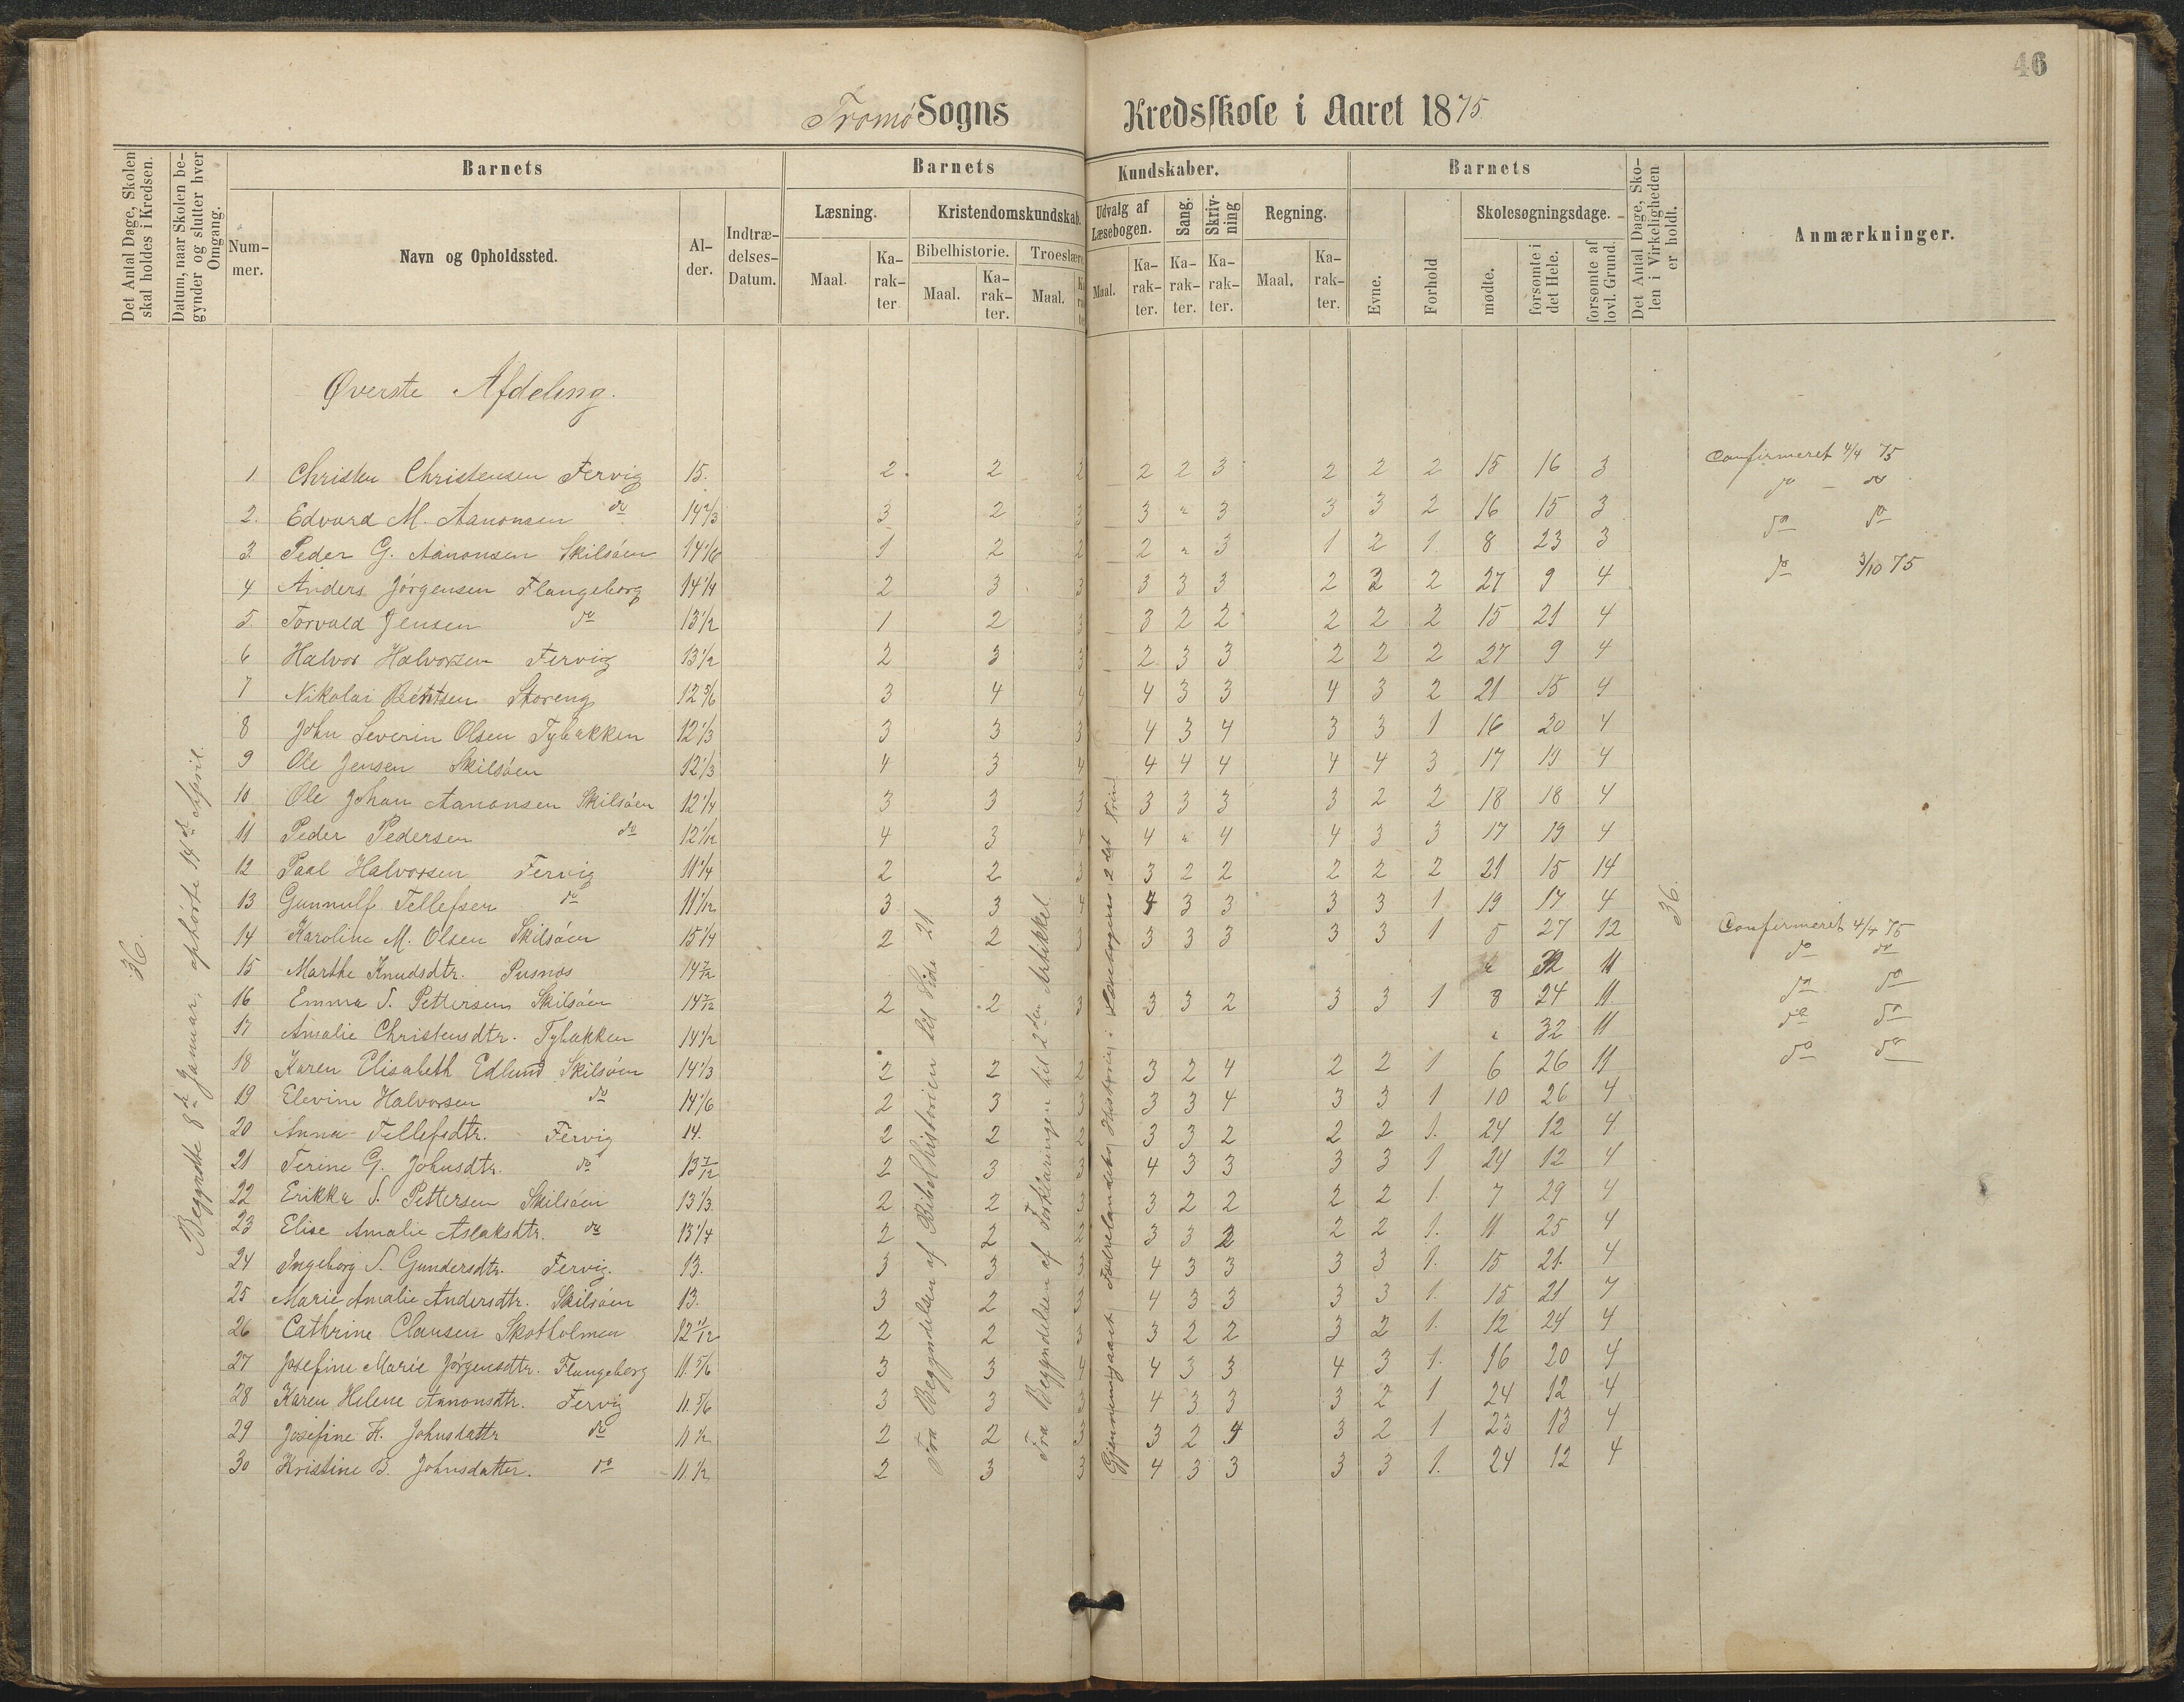 46
Tromø Sogns Kredsskole i Aaret 1875
Det Antal Dage, Skolen skal holdes i Kredsen.
Datum, naar Skolen begynder og slutter hver Omgang.
Barnets
Num-mer.
Navn og Opholdssted.
Al-der.
Indtræ-delses-Datum.
Barnets Kundskaber.
Læsning.
Maal.
Ka-rak-ter
Kristendomskundskab.
Bibelhistorie.
Maal.
Ka-rak-ter.
Troeslære
Maal.
Udvalg af Læsebogen.
Maal.
Ka-rak-ter.
Sang.
Ka-rak-ter.
Skriv-ning
Ka-rak-ter.
Regning.
Maal.
Ka-rak-ter.
Barnets
Evne.
Forhold
Skolesøgningsdage.
mødte.
forsømte i det Hele.
forsømte af lovl. Grund.
Det Antal Dage, Sko-len i Virkeligheden er holdt.
Anmærkninger.
Øverste Afdeling.
36.
Begyndte 8de Januar, ophørte 14de April.
Fra Begyndelsen af Bibelhistorien til Side 21.
Fra Begyndelsen af Forklaringen til 2den Artikkel.
Gjennemgaaet Fædrelandets Historie i Læsebogens 2det Trin
36.
1 Christen Christensen Fervig 15. 2 2 2 2 2 3 2 2 2 15 16 3 Confirmeret 4/4 75
2. Edvard M. Aanonsen do 14 2/3 3 2 3 3 " 3 3 3 2 16 15 3 do do
3 Peder G. Aanonsen Skilsøen 14 1/6 1 2 2 2 " 3 1 2 1 8 23 3 do do
4 Anders Jørgensen Flangeborg 14 1/4 2 3 3 3 3 3 2 2 2 27 9 4 do 3/10 75
5. Torvald Jensen do 13 1/2 1 2 3 3 2 2 2 2 2 15 21 4
6 Halvor Halvorsen Fervig 13 1/2 2 3 3 2 3 3 2 2 2 27 9 4
7 Nikolai Bentsen Storeng 12 5/6 3 4 4 4 3 3 4 3 2 21 15 4
8 John Severin Olsen Tybakken 12 1/3 3 3 3 4 3 4 3 3 1 16 20 4
9 Ole Jensen Skilsøen 12 1/3 4 3 4 4 4 4 4 4 3 17 19 4
10 Ole Johan Aanonsen Skilsøen 12 1/4 3 3 3 3 3 3 3 2 2 18 18 4
11 Peder Pedersen do 12 1/12 4 3 4 4 " 4 4 3 3 17 19 4
12 Paal Halvorsen Fervig 11 1/4 2 2 3 3 2 2 2 2 2 21 15 14
13 Gunnulf Tellefsen do 11 1/12 3 3 4 4 3 3 3 3 1 19 17 4
14 Karoline M. Olsen Skilsøen 15 1/4 2 2 3 3 3 3 3 3 1 5 27 12 Confirmeret 4/4 75
15 Marthe Knudsdtr. Pusnes 14 7/12 " 32 11 do do
16 Emma S. Pettersen Skilsøen 14 7/12 2 2 3 3 3 2 3 3 1 8 24 11 do do
17 Amalie Christensdtr. Tybakken 14 1/2 " 32 11 do do
18 Karen Elisabeth Edlund Skilsøen 14 1/3 2 2 2 3 2 4 2 2 1 6 26 11 do do
19 Elevine Halvorsen do 14 1/6 2 3 3 3 3 4 3 3 1 10 26 4
20 Anna Tellefsdtr. Fervig 14. 2 2 2 3 3 2 2 2 1. 24 12 4
21 Terine G. Johnsdtr. do 13 7/12 2 3 3 4 3 3 3 3 1 24 12 4
22 Erikka S. Pettersen Skilsøen 13 1/3 2 2 3 3 2 2 2 2 1. 7 29 4
23 Elise Amalie Aslaksdtr. do 13 1/4 2 2 2 3 3 2 2 2 1. 11 25 4
24 Ingeborg S. Gundersdtr. Fervig. 13. 3 3 3 4 3 3 3 3 1. 15 21. 4
25 Marie Amalie Andersdtr. Skilsøen 13. 3 2 3 4 3 3 3 3 1. 15 21 7
26 Cathrine Clausen Skotholmen 12 11/12 2 2 3 3 2 2 3 2 1. 12 24 4
27 Josefine Marie Jørgensdtr. Flangeborg 11. 5/6 3 3 4 4 3 3 4 3 1. 16 20 4
28 Karen Helene Aanonsdtr. Fervig 11. 5/6 3 3 3 4 3 3 3 2 1 24 12 4
29 Josefine K. Johnsdattr do 11 1/2 2 2 3 3 2 4 3 2 1 23 13 4
30 Kristine B. Johnsdatter. do 11. 1/2 2 3 3 4 3 3 3 3 1. 24 12 4